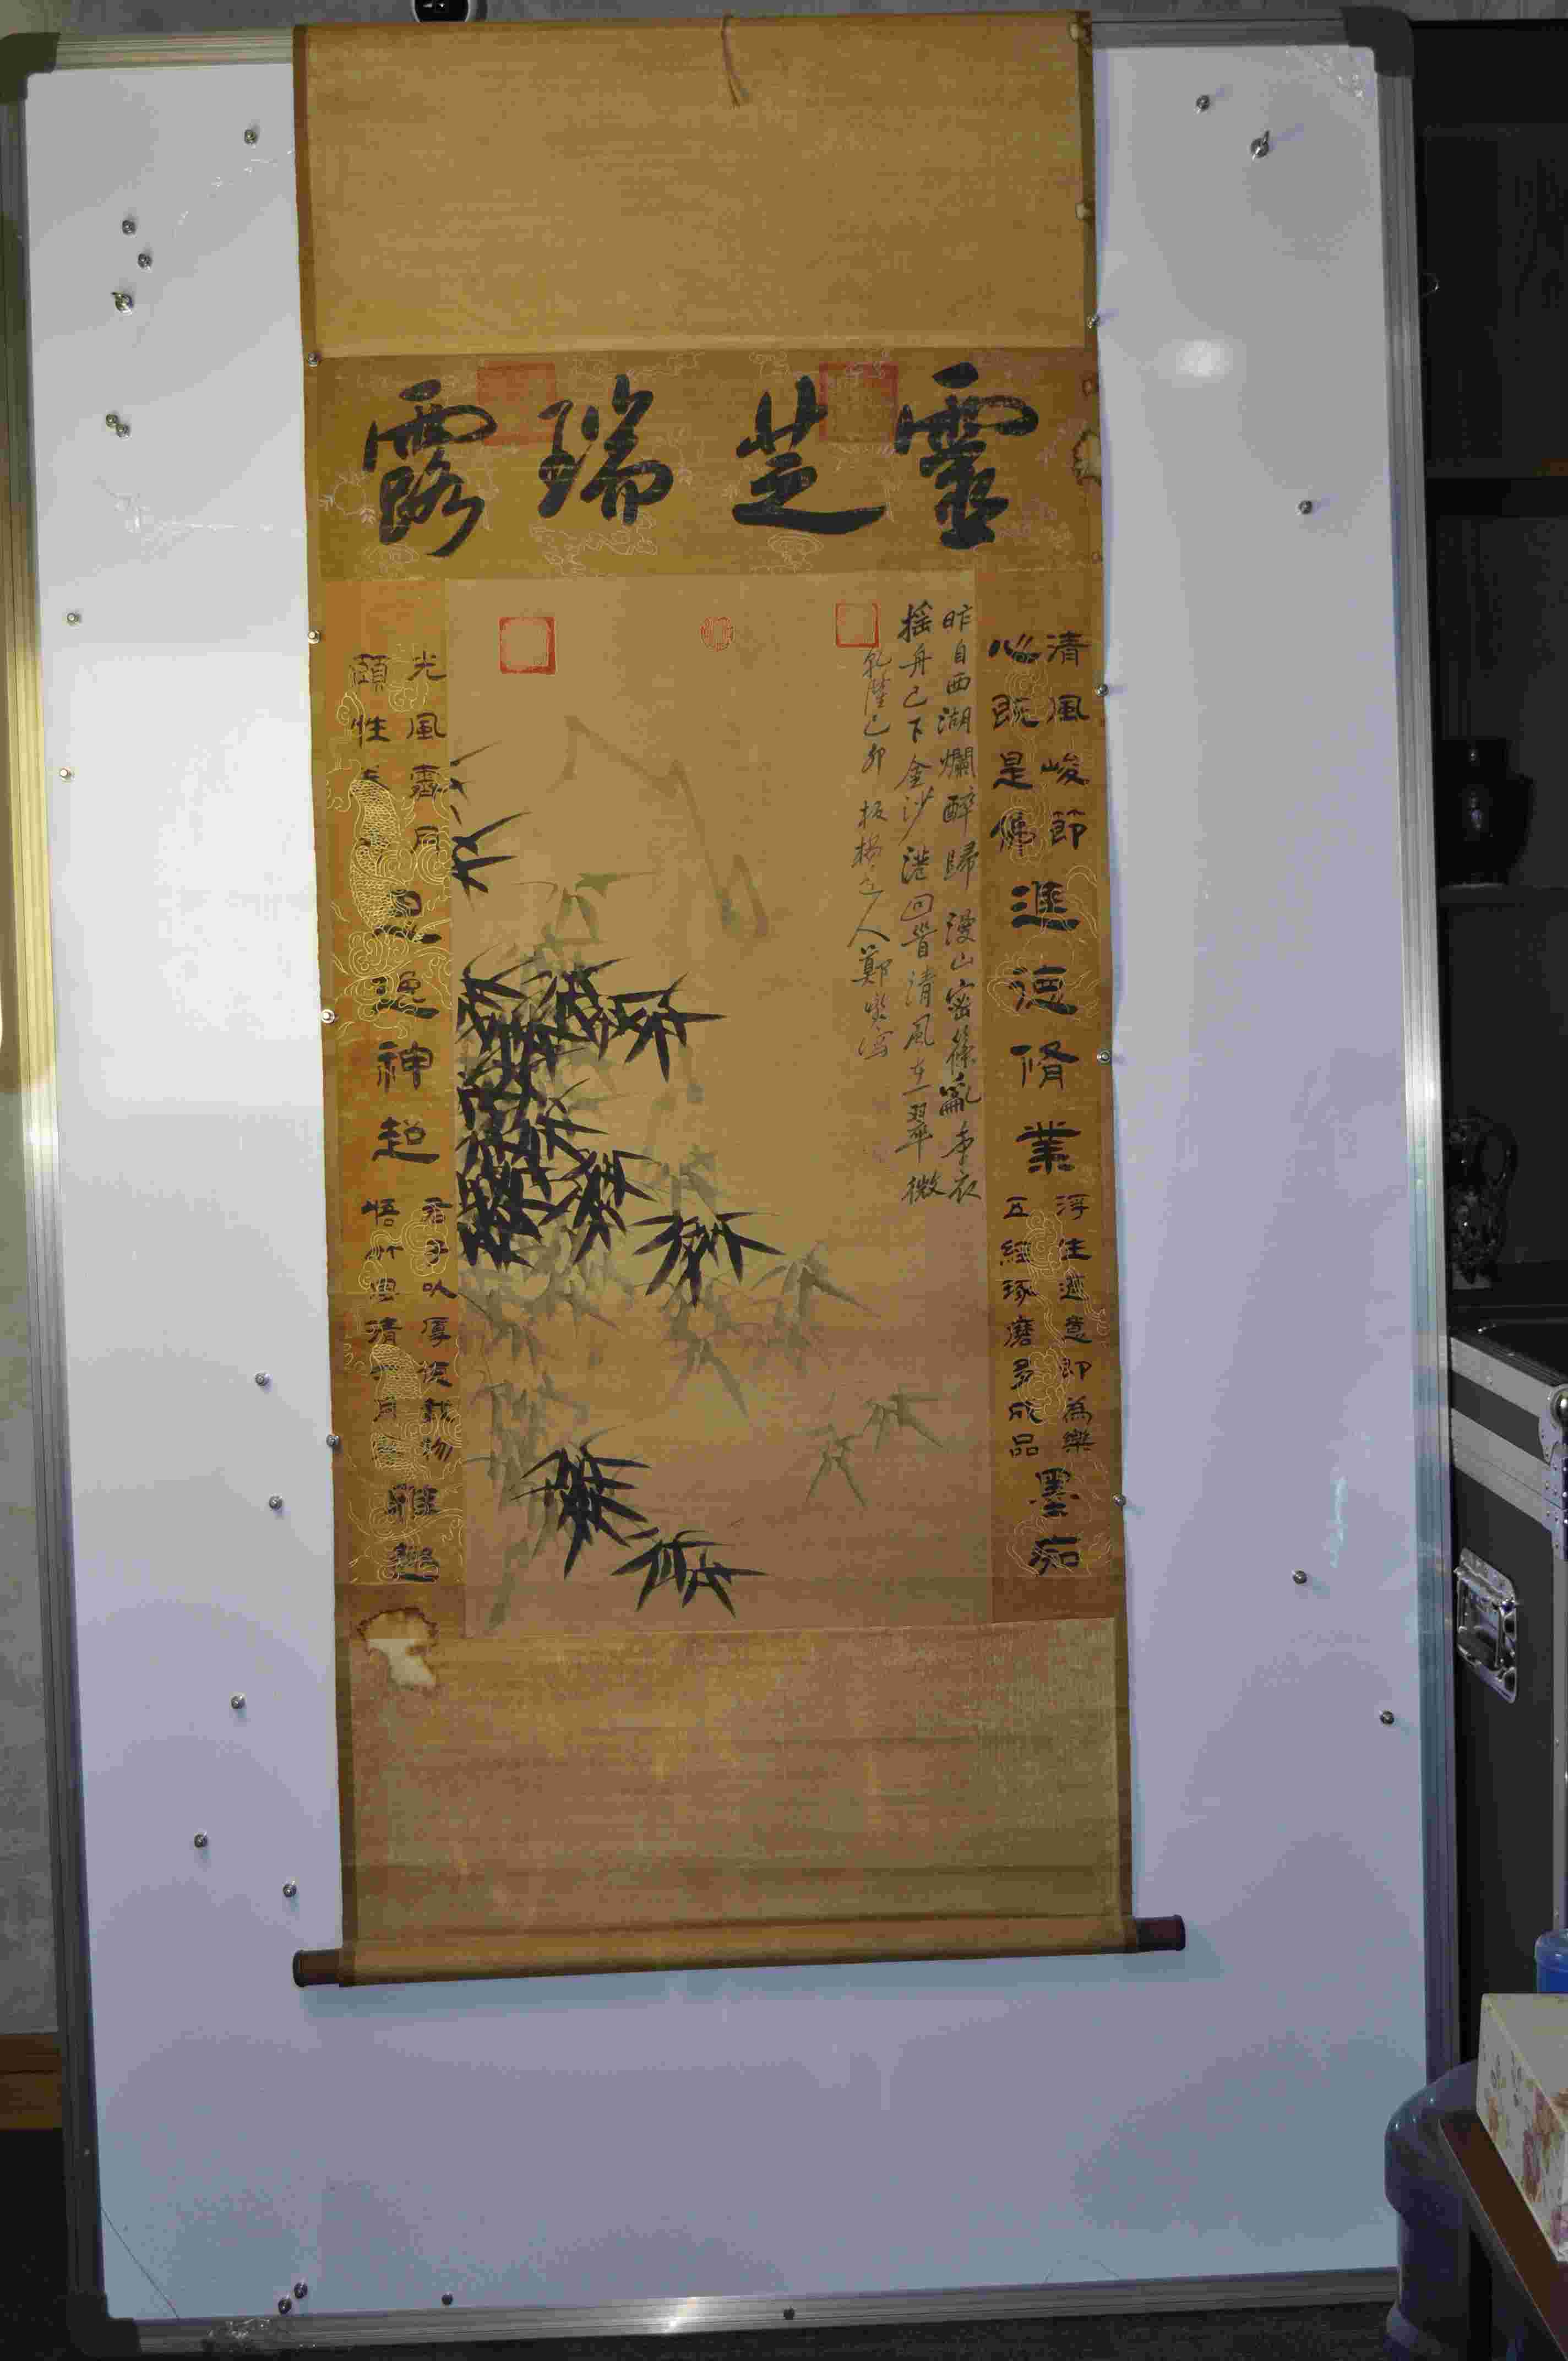 靈芝瑞露
清風峻節
心既是佛
進德脩業
浮生適意即為樂
五經琢磨多成品
墨痴
昨自西湖爛醉歸漫山密篠亂牽衣
搖舟已下金沙港回首清風在翠微
乾隆己卯 板橋道人鄭燮寫
光風霽月
頤性
思逸神超
君子以厚德載物
悟竹與清風月
雅趣